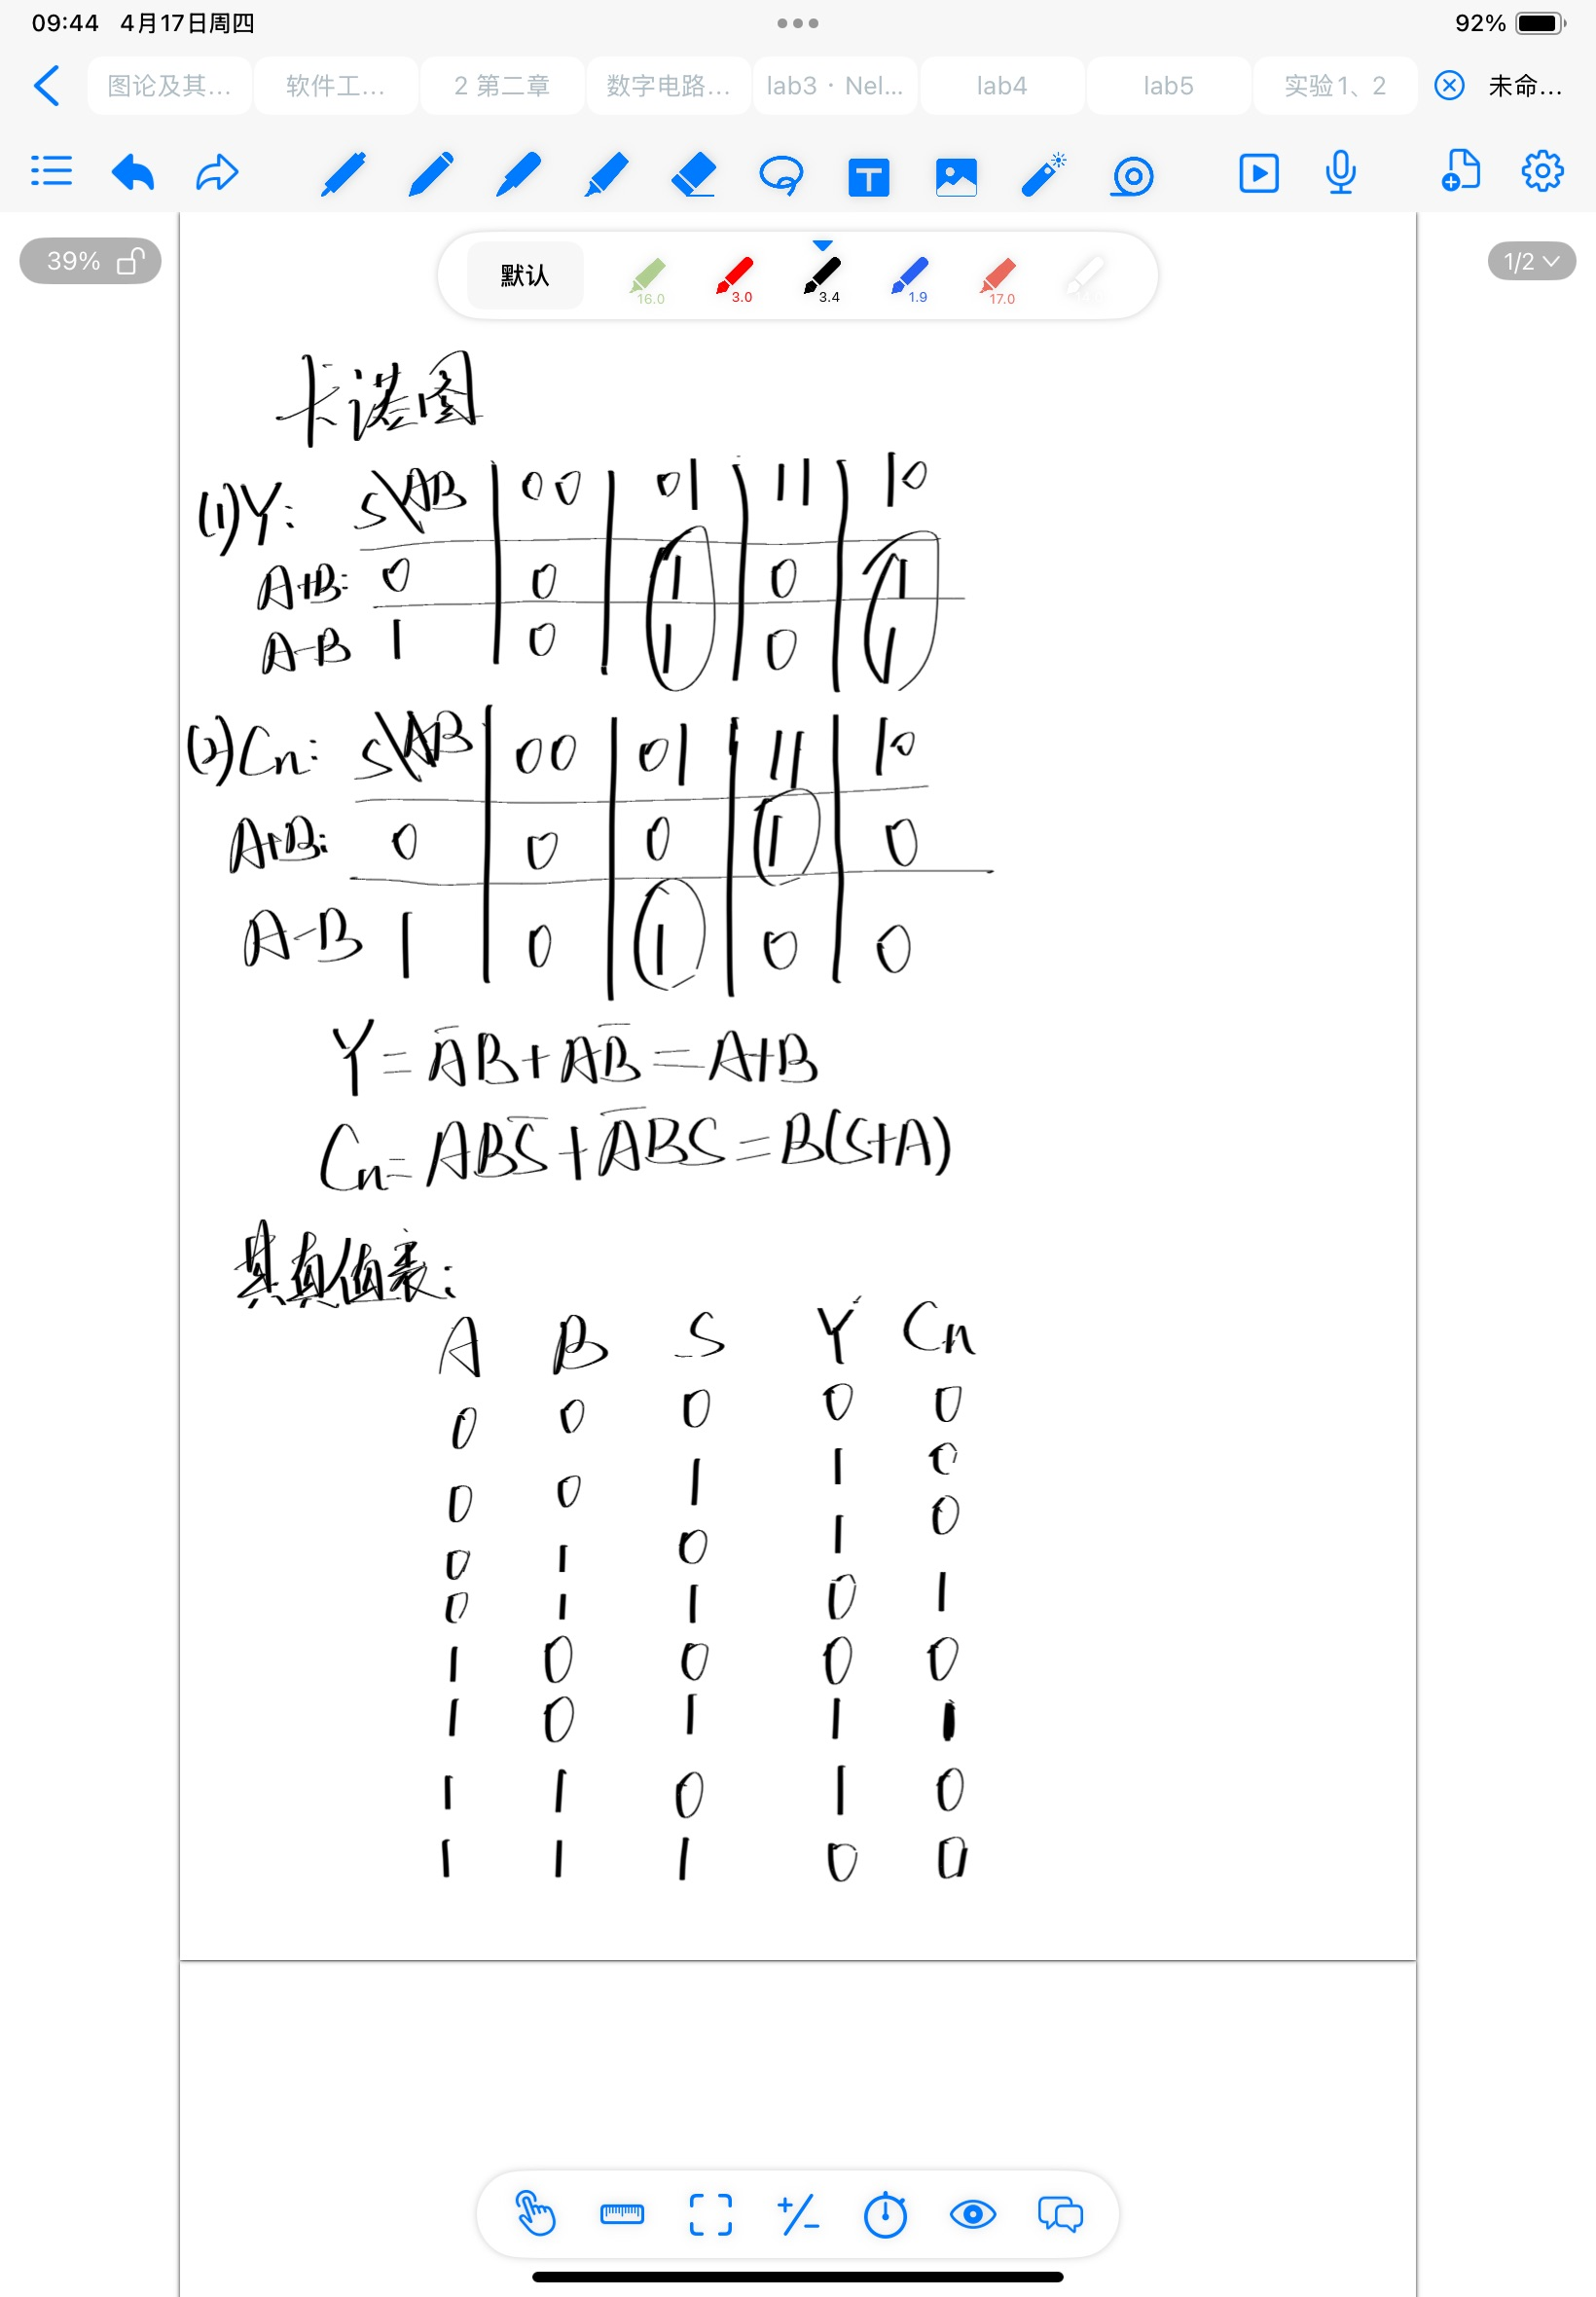 09:44 4月17日周四 92%
图论及其... 软件工... 2 第二章 数字电路... lab3 · Nel... lab4 lab5 实验1、2 未命...
39% 默认 16.0 3.0 3.4 1.9 17.0 1/2
卡诺图
(1)Y: S\AB 00 01 11 10
A+B: 0 0 1 0 1
A-B 1 0 1 0 1
(2)Cn: S\AB 00 01 11 10
A+B: 0 0 0 1 0
A-B 1 0 1 0 0
Y=A̅B+AB̅=A+B
Cn=ABS̅+A̅BS=B(S+A)
其真值表:
A B S Y Cn
0 0 0 0 0
0 0 1 1 0
0 1 0 1 0
0 1 1 0 1
1 0 0 0 0
1 0 1 1 1
1 1 0 1 0
1 1 1 0 0